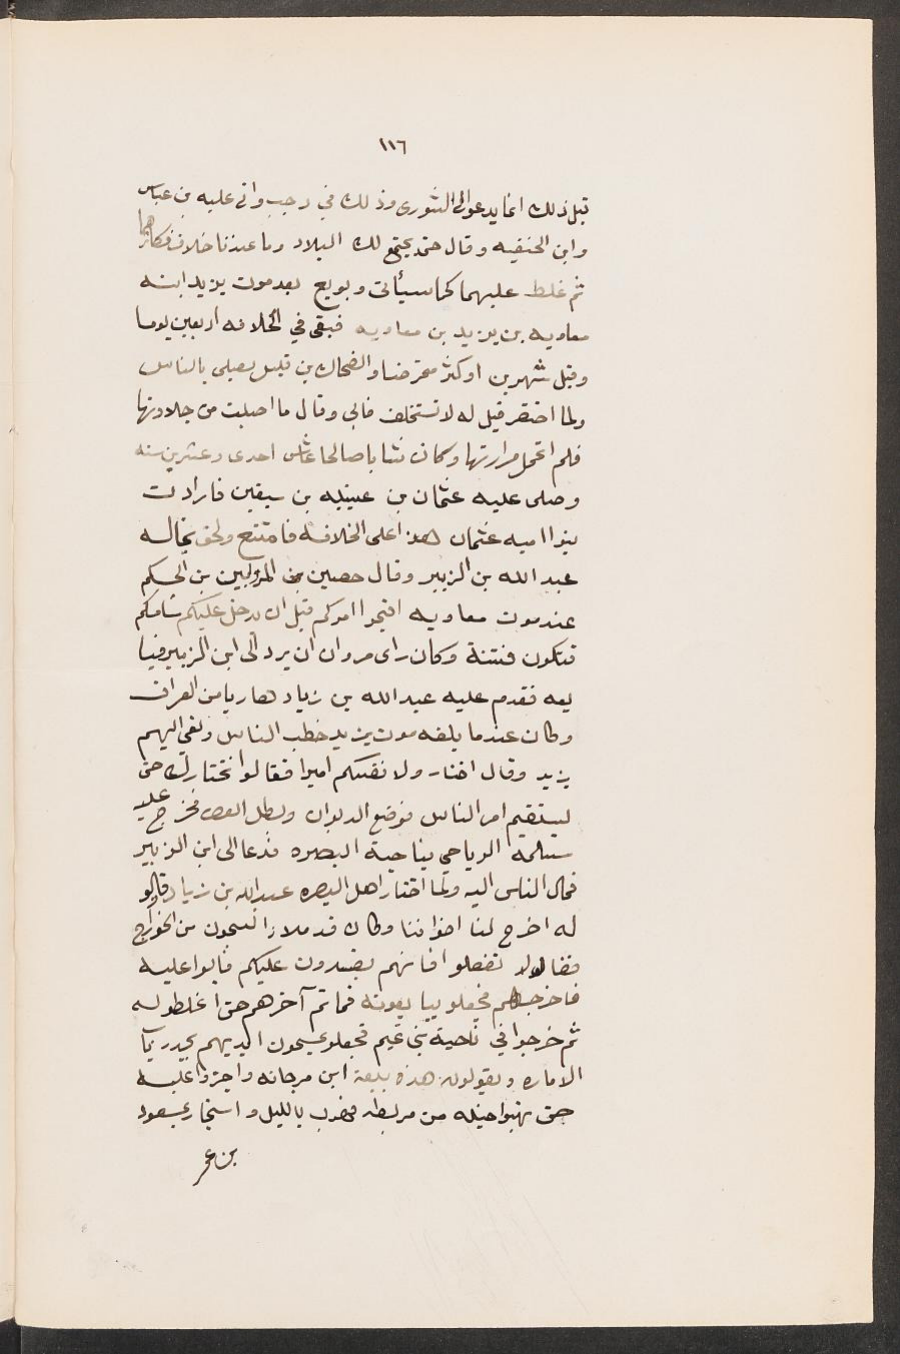 ١١٦
قبل ذلك انما يدعو الى الشورى وذلك في رجب وابى عليه بن عباس
وابن الحنفيه وقال حتى يجتمع لك البلاد وما عندنا خلاف فكاثرهما
ثم غلط عليهما كما سيأتى وبويع بعد موت يزيد ابنه
معاويه بن يزيد بن معاويه فبقى في الخلافه اربعين يوما
وقيل شهرين او كثر متمرضا والضحاك بن قيس يصلى بالناس
ولما احتضر قيل له لا تستخلف فابى وقال ما اصبت من حلاوتها
فلم اتحمل مرارتها وكان شابا صالحا عاش احدى وعشرين سنه
وصلى عليه عثمان بن عيينه بن سيفين فارادت
بنوا اميه عثمان هذا على الخلافة فامتنع ولحق بخاله
عبد الله بن الزبير وقال حصين بن المزوبين بن الحكم
عند موت معاويه اقيموا امركم قبل ان يدخل عليكم شامكم
فتكون فتنة وكان راى مروان ان يرد الى ابن الزبير فيبا
يعه فقدم عليه عبد الله بن زياد هاربا من العراق
وكان عندما بلغه موت يزيد خطب الناس ونعى اليهم
يزيد وقال اختار ولا نفسكم اميرا فقالوا نختارك حتى
يستقيم امر الناس فوضع الديوان وبطل العصى فخرج عليه
سلمه الرياحي بناحية البصره فدعا الى ابن الزبير
فمال الناس اليه ولما اختار اهل البصره عبدالله بن زياد قالو
له اخرج لنا اخواننا وكان قد ملا السجون من الخوارج
فقال لا تفعلوا فانهم يفسدون عليكم فابوا عليه
فاخرجهم فجعلو يبايعونه فما تم آخرهم حتى اغلطو له
ثم خرجوا في ناحية بنى تميم فجعلو يمسحون ايديهم بجدر باب
الاماره ويقولون هذه بيعة ابن مرجانه واجتروا عليه
حتى نهبوا خيله من مربطه فهرب بالليل واستجار بمسعود
بن عمر